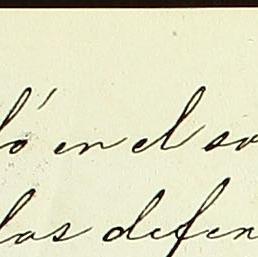 ló en el so
los defen